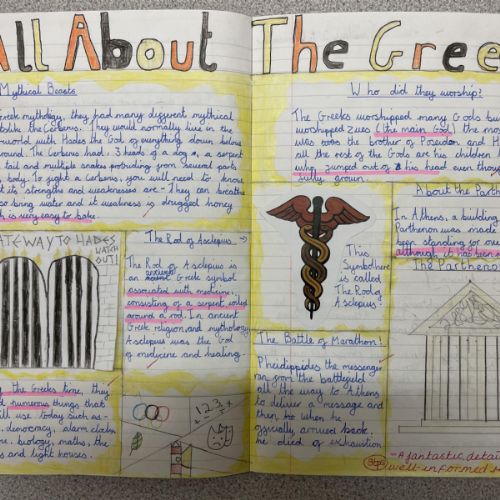 All About The Gree
Mythical Beasts
Greek mythology, they had many different mythical
like the Cerberus. They would normally live in the
world with Hades the God of everything down below
ground. The Cerberus had: 3 heads of a dog, a serpent
tail and multiple snakes protruding from several parts
body. To fight a Cerberus, you will need to know
it's strengths and weaknesses are - They can breathe
bring water and it's weakness is drugged honey
is very easy to bake.
GATEWAY TO HADES
WATCH
OUT!
The Rod of Asclepius →
The Rod of Asclepius is
an ancient Greek symbol
associated with medicine,
consisting of a serpent coiled
around a rod. In ancient
Greek religion and mythology
Asclepius was the God
of medicine and healing.
the Greeks time, they
numerous things that
still use today such as:-
democracy, alarm clocks
biology, maths, the
and light houses.
1 2 3
Who did they worship?
The Greeks worshipped many Gods bu
worshipped Zues (the main God) the m
was the brother of Poseidon and H
all the rest of the Gods are his children
who jumped out of his head even thou
fully grown.
This
Symbol here
is called
The Rod of
Asclepius.
About the Parth
In Athens, a building
Parthenon was made
been standing for over
although, it has been
The Parthenon
The Battle of Marathon!
Pheidippides the messenger
ran from the battlefield
all the way to Athens
to deliver a message and
then, when he
arrived back,
he died of exhaustion
-A fantastic detai
well-informed